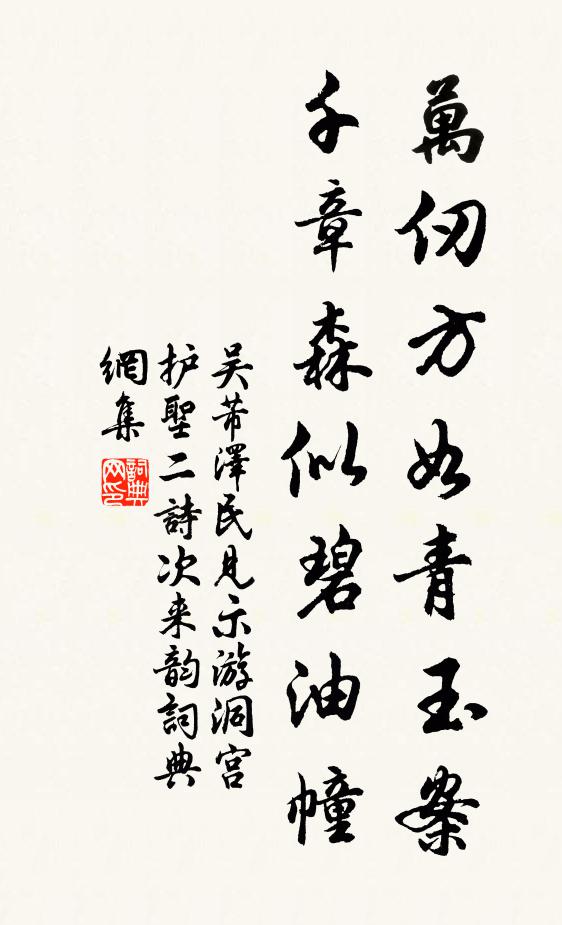 萬仞方如青玉案
千章森似碧油幢
吴芾澤民見示游洞宫
护聖二詩次来韵詞典
網集
詞典网印